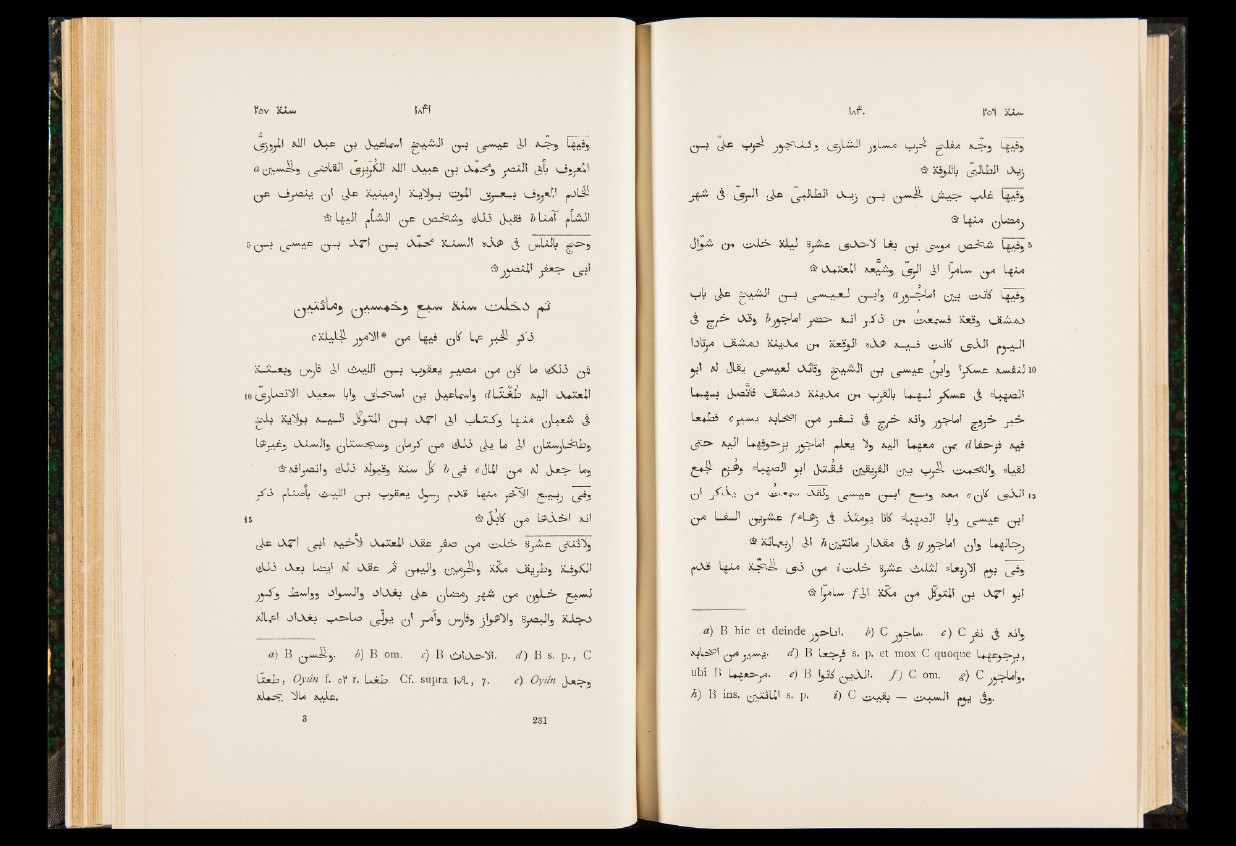 سنة ٢٥٦
١٨٤٠
وفيها وجّه مفلح لحرب مساور الشارى وكنجور لحرب علىّ بن
زيد الطالبىّ بالكوفة ۞
وفيها غلب جيش الحسن بن زيد الطالبىّ على الرىّ فى شهر
رمضان منها ۞
5 وفيها شخص موسى بن بغا لاحدى عشرة ليلة خلت من شوّال
منها من سامرّا الى الرىّ وشيّعه المعتمد ۞
وفيها كانت بين اماجور a وابن لعيسى بن الشيخ على باب
دمشق وقعة فسمعتُ من ذكر انه حضر اماجور b وقد خرج فى
اليوم الذى كانت فيه هذه الوقعة من مدينة دمشق مرتادا
10 لنفسه عسكرا وابن عيسى بن الشيخ وقائد لعيسى يقال له ابو
الصهباء فى عسكر لهما بالقرب من مدينة دمشق فاتّصل بهما
خبر خروج اماجور وانه خرج فى نفر من اصحابه يسير c فطمعا
فيه فزحفا d بمن معهما اليه ولا يعلم اماجور بزحوفهما اليه حتى
لقياه والتحمت الحرب بين الفريقين فقُتل ابو الصهباء وهُزم الجمع
15 الذى كان e معه ومع ابن عيسى ولقد سمعتُ من يذكر ان
ابن عيسى وابا الصهباء كانا يومئذ فى زهاء f عشرين الفا من
رجالهما وان اماجور g فى مقدار مائتين h الى اربعمائة ۞
وفى يوم الاربعاء لثلث عشرة خلت i من ذى الحجّة منها قدم
ابو احمد بن المتوكّل من مكّة الى f سامرّا ۞
a) B hic et deinde ماجور. b) C ماجور. c) C وانه فى نفر
يسير من اصحابه. d) B فرجعا s. p. et mox C quoque برجوعهما,
ubi B مرجعهما. e) B الذين كانوا. f) C om. g) C وماجور.
h) B ins. المائتين s. p. i) C بقيت — وفى يوم السبت.
١٨٤١
سنة ٢٥٧
وفيها وجّه الى عيسى بن الشيخ اسماعيل بن عبد الله المروزىّ
المعروف بأبى النصر ومحمّد بن عبيد الله الكُرَيزىّ القاضى والحسين a
الخادم المعروف بعرق الموت بولاية ارمينية على ان ينصرف عن
الشأم آمنا b فقبل ذلك وشخص عن الشأم اليها ۞
5 وحجّ بالناس فى هذه السنة محمّد بن احمد بن عيسى بن
ابى جعفر المنصور ۞
ثم دخلت سنة سبع وخمسين ومائتين
ذكر الخبر عما كان فيها من *الامور الجليلة c
فمن ذلك ما كان من مصير يعقوب بن الليث الى فارس وبعثة
10 المعتمد اليه طُغْتا d واسماعيل بن اسحاق وابا سعيد الانصارىّ
فى شعبان منها وكتاب الى احمد بن المتوكّل اليه بولاية بلخ
وطخارستان الى ما يلى ذلك من كرمان وسجستان والسند وغيرها
وما جعل له من المال e فى b كلّ سنة وقبوله ذلك وانصرافه ۞
وفى ربيع الآخر منها قدم رسول يعقوب بن الليث بأصنام ذكر
15 انه اخذها من كابُل ۞
ولاثنتى عشرة خلت من صفر عقد المعتمد لأخيه ابى احمد على
الكوفة وطريق مكّة والحرمين واليمن ثم عقد له ايضا بعد ذلك
لسبع خلون من شهر رمضان على بغداد والسواد وواسط وكور
دجلة والبصرة والاهواز وفارس وأمر ان يولّى صاحب بغداد اعماله
a) B والحسن. b) B om. c) B الاحداث. d) B s. p., C
طعتا, Oyún f. ٥٢ r. طغا. Cf. supra ١٧٩٠, 7. e) Oyún وجعل
عليه مالا يحمله.
3
231